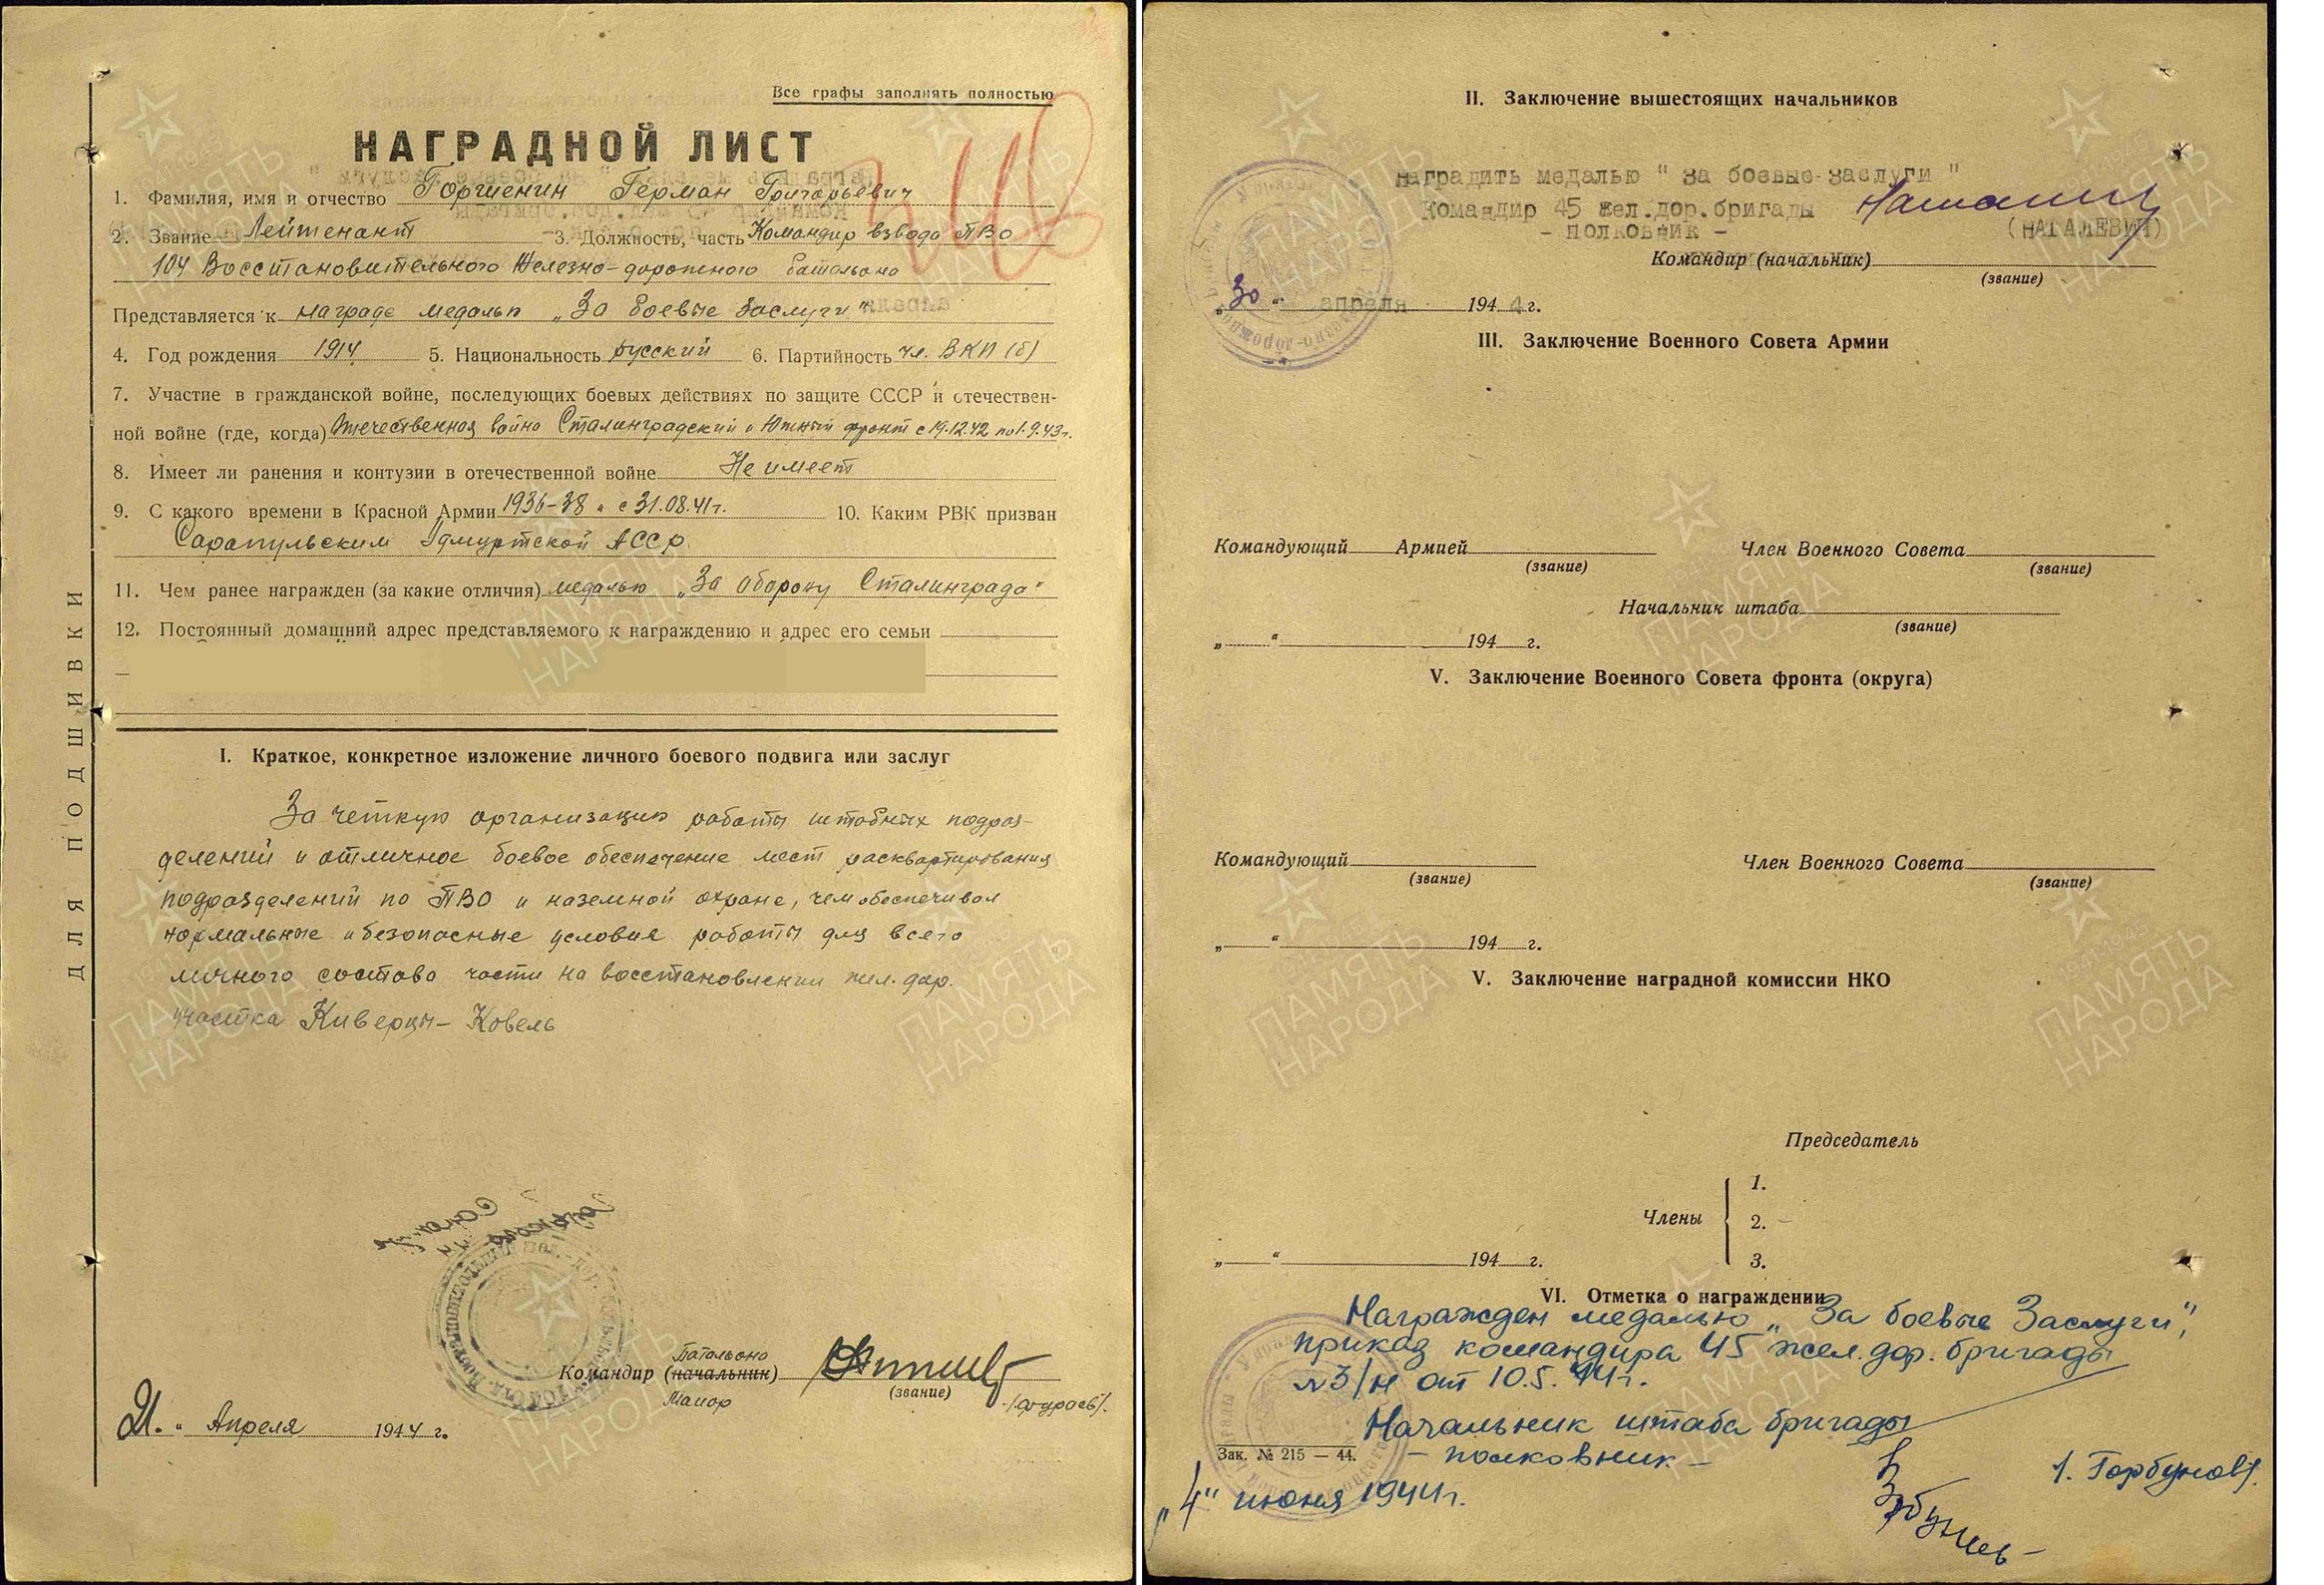 Все графы заполнять полностью
НАГРАДНОЙ ЛИСТ
1. Фамилия, имя и отчество Горшенин Герман Григорьевич
2. Звание Лейтенант 3. Должность, часть Командир взвода ПВО
104 Восстановительного Железно-дорожного батальона
Представляется к награде медалью „За боевые заслуги"
4. Год рождения 1914 5. Национальность русский 6. Партийность чл. ВКП(б)
7. Участие в гражданской войне, последующих боевых действиях по защите СССР и отечествен-
ной войне (где, когда) Отечественная война Сталинградский и Южный фронт с 19.12.42 по 1.9.43г.
8. Имеет ли ранения и контузии в отечественной войне Не имеет
9. С какого времени в Красной Армии 1936-38 и с 31.08.41г. 10. Каким РВК призван
Сарапульским Удмуртской АССР
11. Чем ранее награжден (за какие отличия) медалью „За оборону Сталинграда"
12. Постоянный домашний адрес представляемого к награждению и адрес его семьи
ДЛЯ ПОДШИВКИ
I. Краткое, конкретное изложение личного боевого подвига или заслуг
За четкую организацию работы штабных подраз-
делений и отличное боевое обеспечение мест расквартирования
подразделений по ПВО и наземной охране, чем обеспечивал
нормальные и безопасные условия работы для всего
личного состава части на восстановлении жел. дор.
участка Киверцы - Ковель
батальона
Командир (начальник)
(звание)
Майор
„21" Апреля 1944 г.
II. Заключение вышестоящих начальников
Наградить медалью "За боевые заслуги"
Командир 45 жел.дор.бригады
- полковник - (НАТАЛЕВИЧ)
Командир (начальник)
(звание)
„30" апреля 1944 г.
III. Заключение Военного Совета Армии
Командующий Армией Член Военного Совета
(звание) (звание)
Начальник штаба
(звание)
„ " 194 г.
V. Заключение Военного Совета фронта (округа)
Командующий Член Военного Совета
(звание) (звание)
„ " 194 г.
V. Заключение наградной комиссии НКО
Председатель
Члены
1.
2.
3.
„ " 194 г.
VI. Отметка о награждении
Награжден медалью „За боевые Заслуги",
приказ командира 45 жел. дор. бригады
№3/н от 10.5.44г.
Начальник штаба бригады
Зак. № 215 — 44.
- полковник -
/. Горбунов/.
„4" июня 1944г.
ПАМЯТЬ
НАРОДА